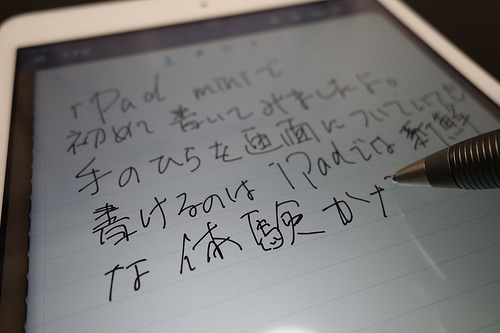 iPad miniで
初めて書いてみましたよ。
手のひらを画面についていても
書けるのはiPadでは新鮮
な体験かな